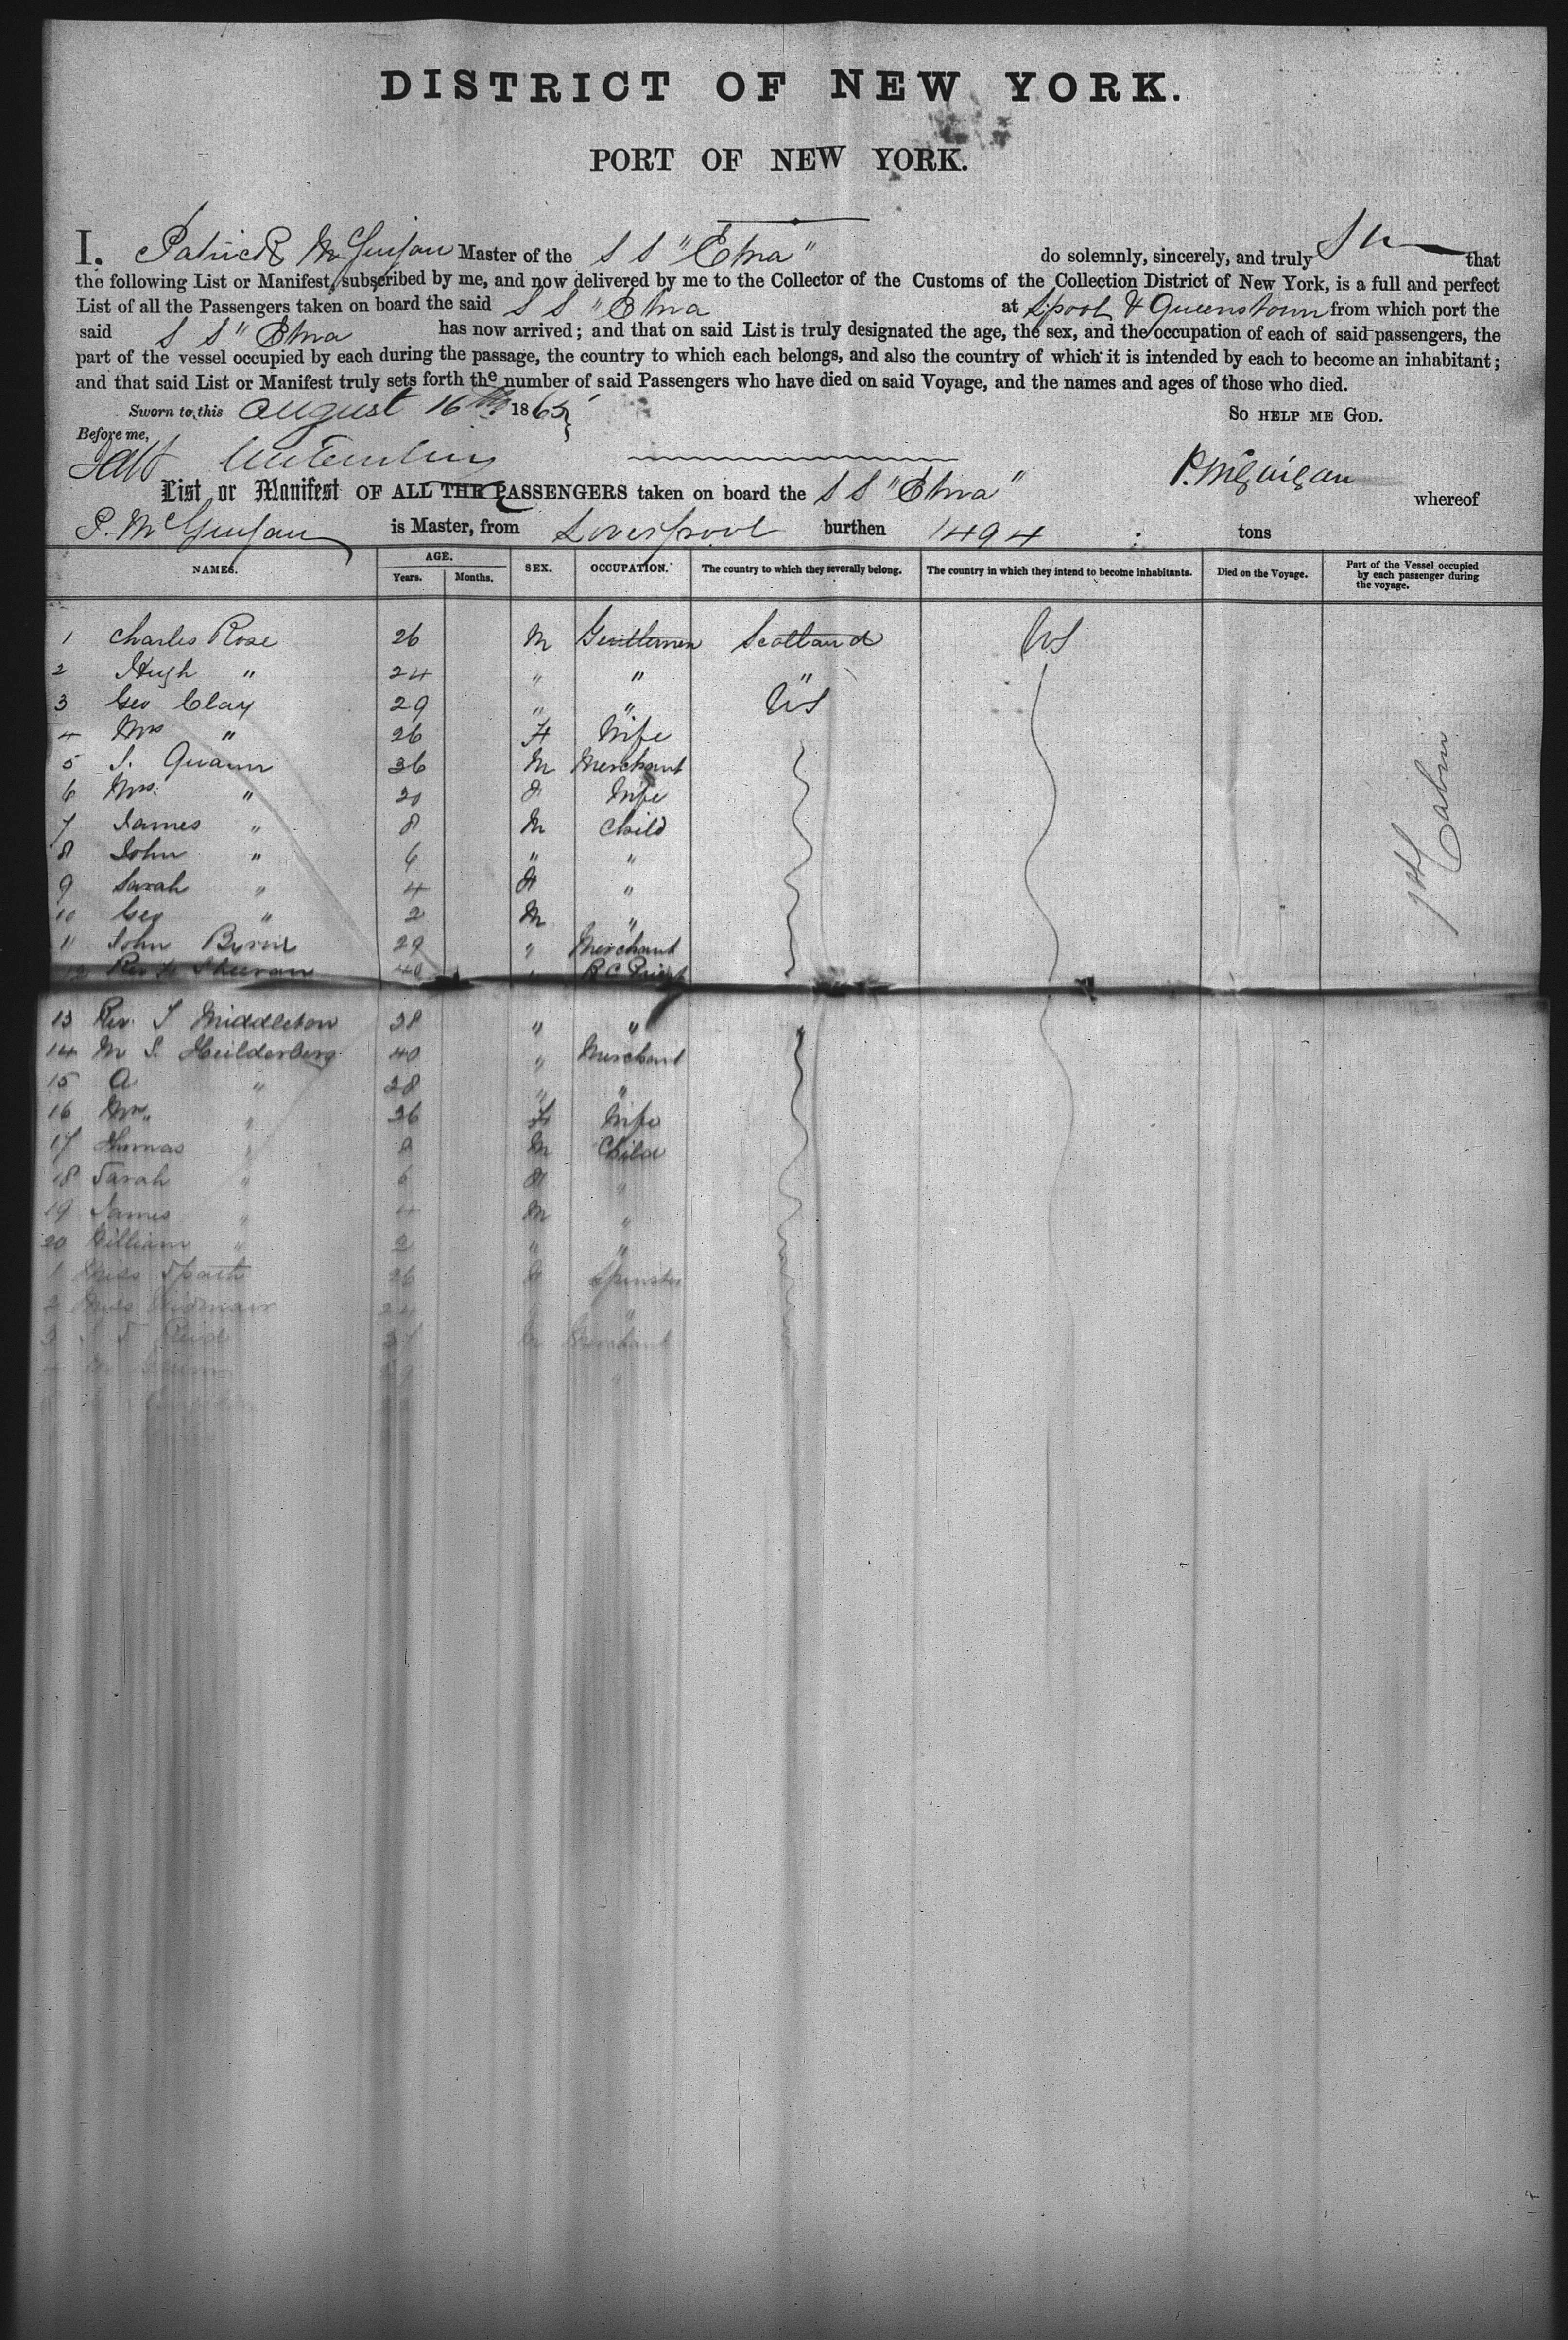 DISTRICT OF NEW YORK.
PORT OF NEW YORK.
I. Patrick McGuigan Master of the S S "Etna" do solemnly, sincerely, and truly that
the following List or Manifest, subscribed by me, and now delivered by me to the Collector of the Customs of the Collection District of New York, is a full and perfect
List of all the Passengers taken on board the said S S "Etna at Lpool & Queenstown from which port the
said S S "Etna has now arrived; and that on said List is truly designated the age, the sex, and the occupation of each of said passengers, the
part of the vessel occupied by each during the passage, the country to which each belongs, and also the country of which it is intended by each to become an inhabitant;
and that said List or Manifest truly sets forth the number of said Passengers who have died on said Voyage, and the names and ages of those who died.
Sworn to this August 16th 1865 SO HELP ME GOD.
Before me,
P. McGuigan
List or Manifest OF ALL THE PASSENGERS taken on board the S S "Etna" whereof
P. McGuigan is Master, from Liverpool burthen 1494 tons
NAMES. AGE. Years. Months. SEX. OCCUPATION. The country to which they severally belong. The country in which they intend to become inhabitants. Died on the Voyage. Part of the Vessel occupied by each passenger during the voyage.
1 Charles Rose 26 M Gentlemen Scotland US
2 Hugh " 24 " " "
3 Geo Clay 29 " " US
4 Mrs " 26 F Wife
5 S. Quann 36 M Merchant
6 Mrs. " 30 F Wife
7 James " 8 M Child
8 John " 6 " "
9 Sarah " 4 F "
10 Geo " 2 M "
11 John Byrne 29 " Merchant
12 Rev 40 " R C Priest
13 Rev. T Middleton 38 " "
14 M S. Heilderberg 40 " Merchant
15 A " 28 " "
16 Mrs. " 36 F Wife
17 Thomas " 8 M Child
18 Sarah " 6 F "
19 James " 4 M "
20 William " 2 " "
1 Miss 26 F Spinster
2 Miss 24 " "
3 Reid M Merchant
1st Cabin